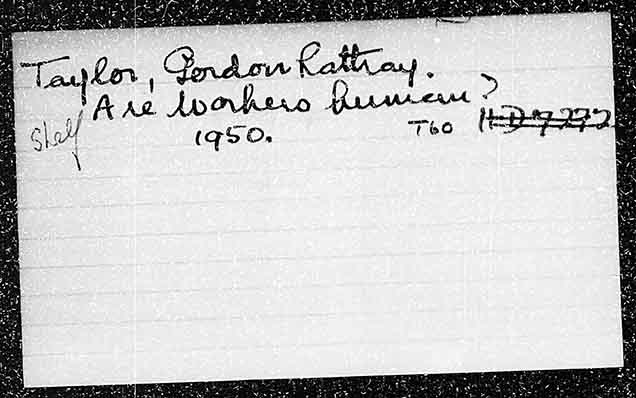 Taylor, Gordon Rattray.
Are Workers human?
Shelf 1950. T60 HD7272